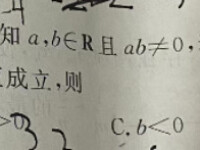 知 a,b∈R 且 ab≠0,
成立,则
>0 C. b<0